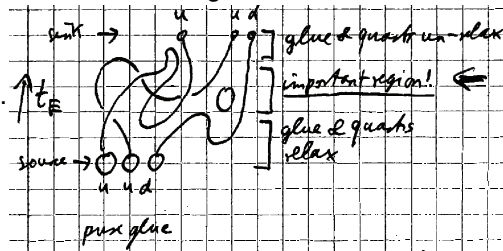 u u d
sink → glue & quarks un-relax
important region!
t_E
glue & quarks
relax
source →
u u d
pure glue